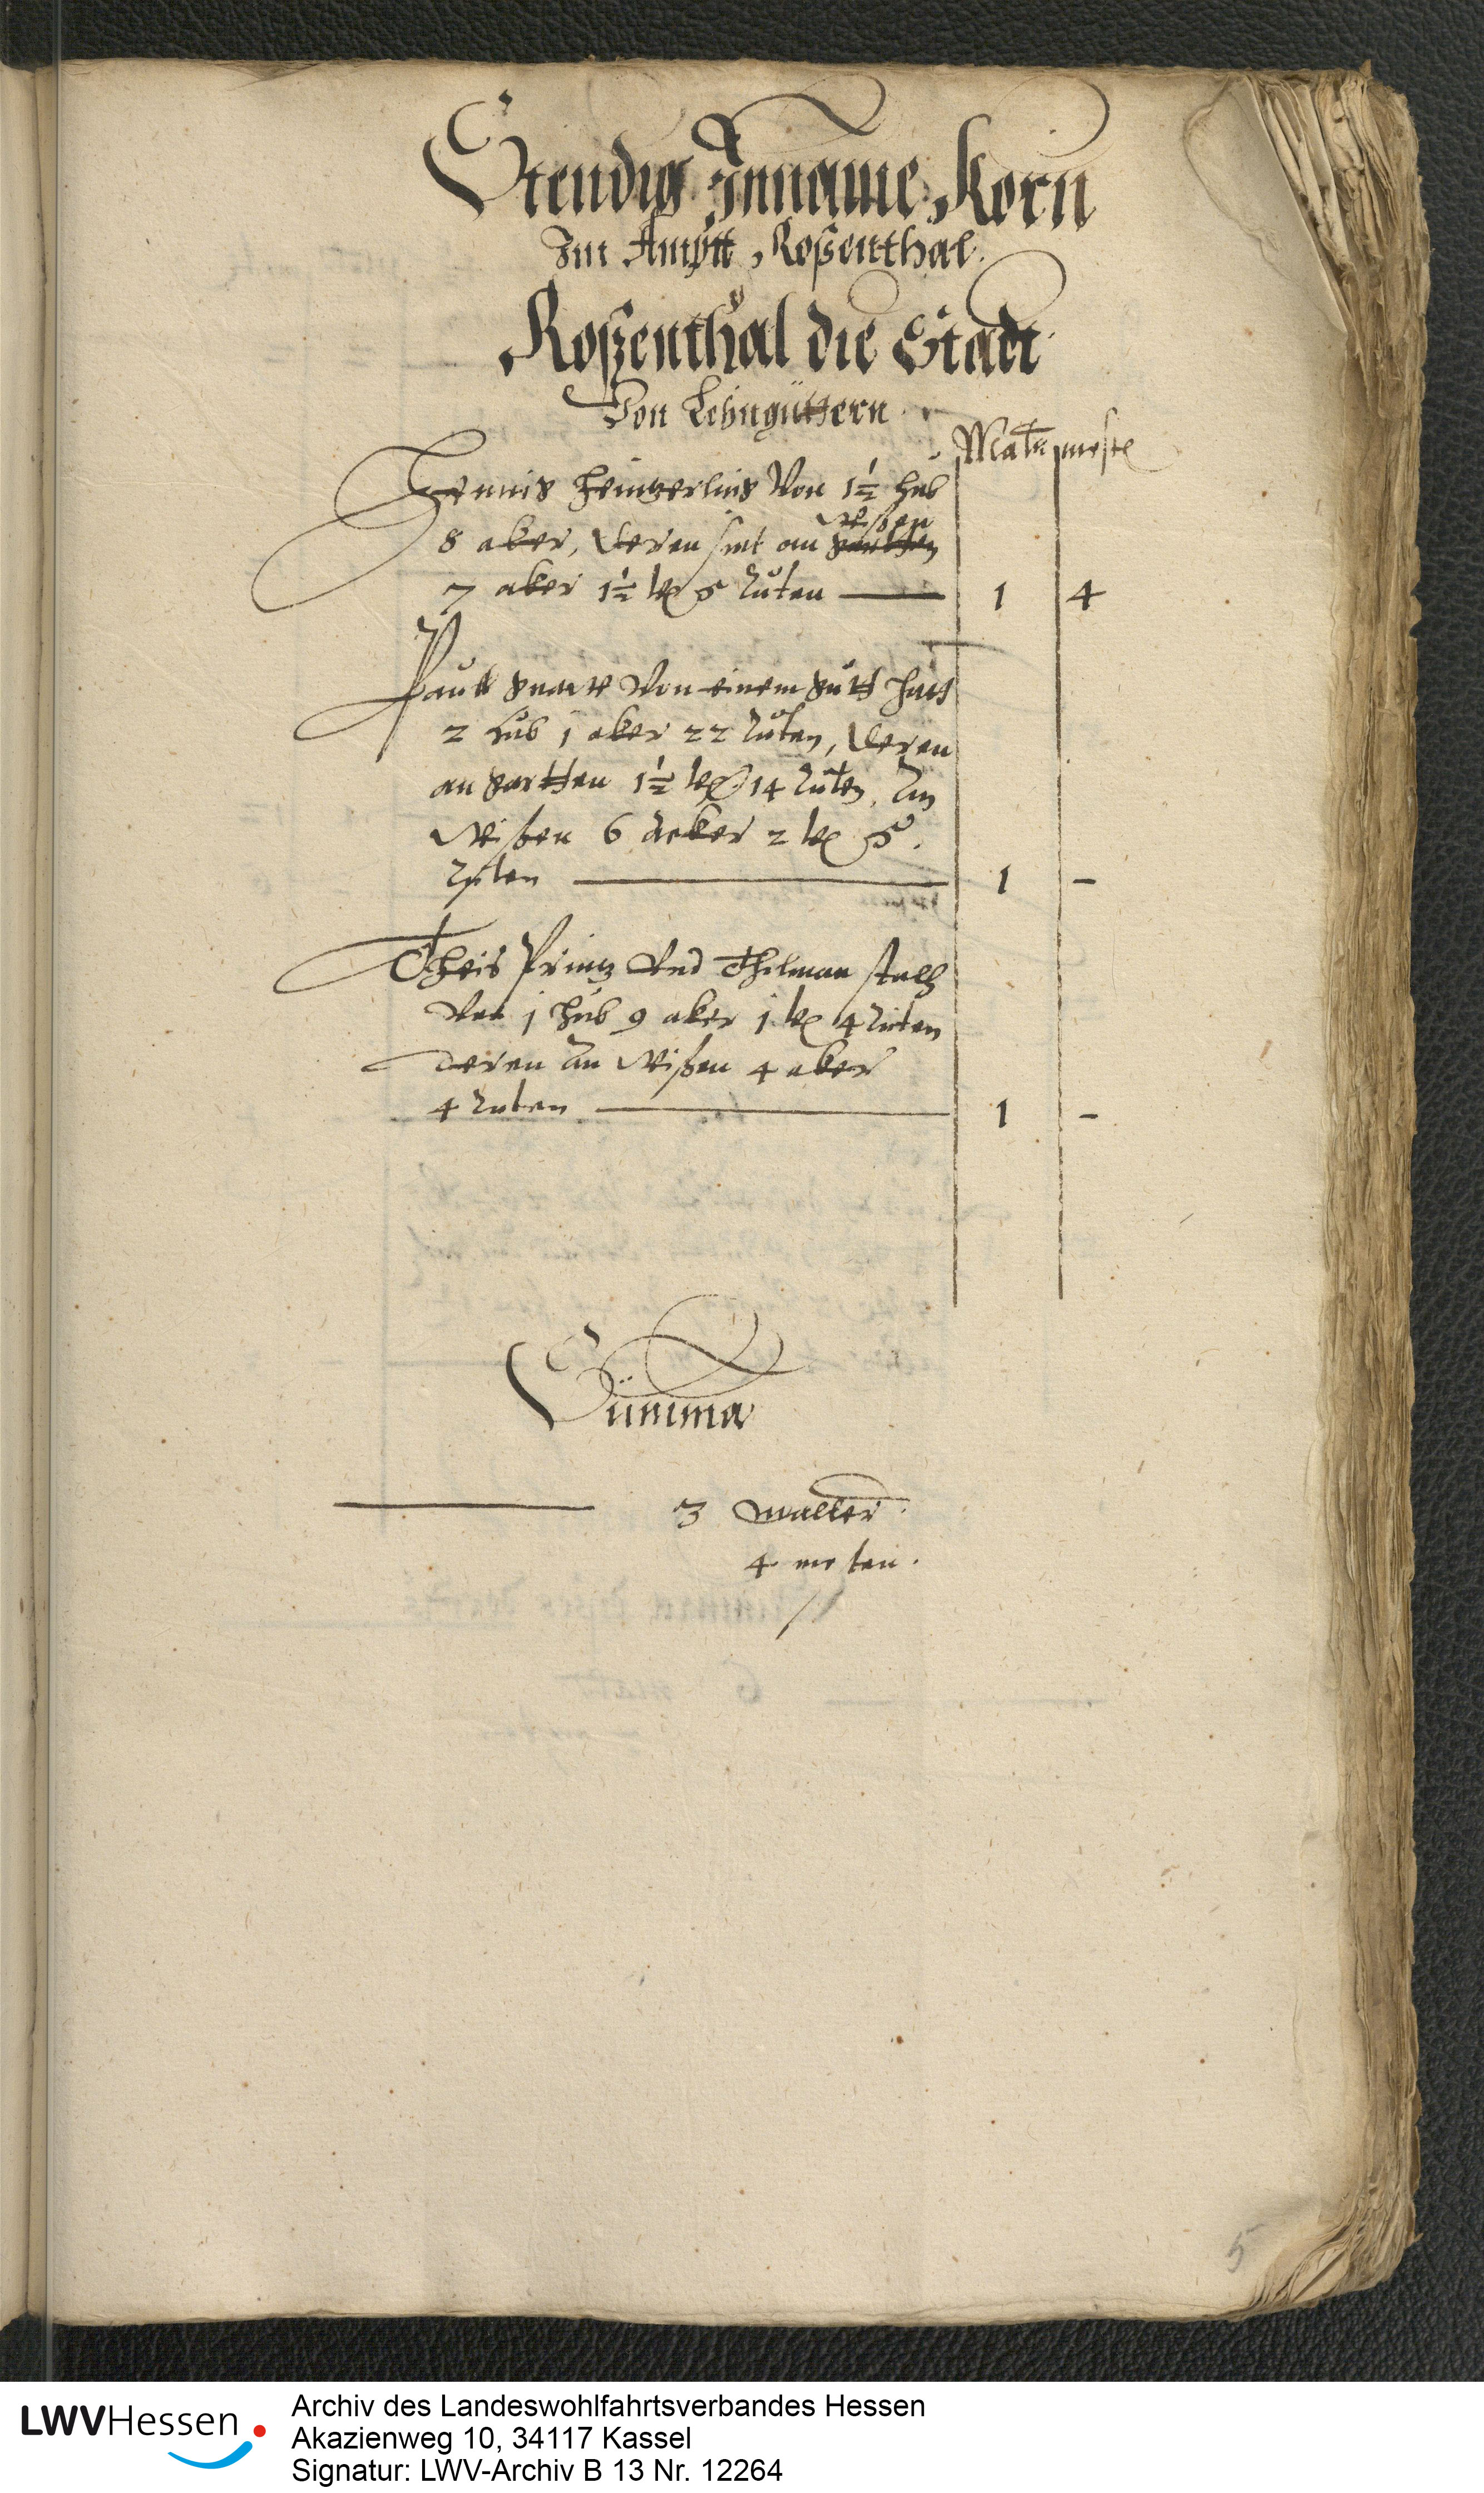 Stendig Inname Korn
Im Ampt Roßenthal
Roßenthal die Stadt
Von Lehngüttern
Maltr meste
Hennis Heintzerlins Von 1½ hub
8 aker, deren sint an wißen
gartten
7 aker 1½ 5 ruten 1 4
Paull von einem gutt hatt
2 hub 1 aker 22 ruten, deren
an gartten 1½ 14 ruten, An
Wißen 6 acker 2 5
ruten 1 -
Theis Printz Und Thilman
Von 1 hub 9 aker 1 4 ruten
deren An Wißen 4 aker
4 ruten 1 -
Summa
3 Malter
4 mesten
5
LWVHessen
Archiv des Landeswohlfahrtsverbandes Hessen
Akazienweg 10, 34117 Kassel
Signatur: LWV-Archiv B 13 Nr. 12264